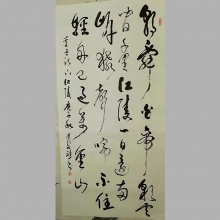 朝辞白帝彩云
间千里江陵一日还两
岸猿声啼不住
轻舟已过万重山